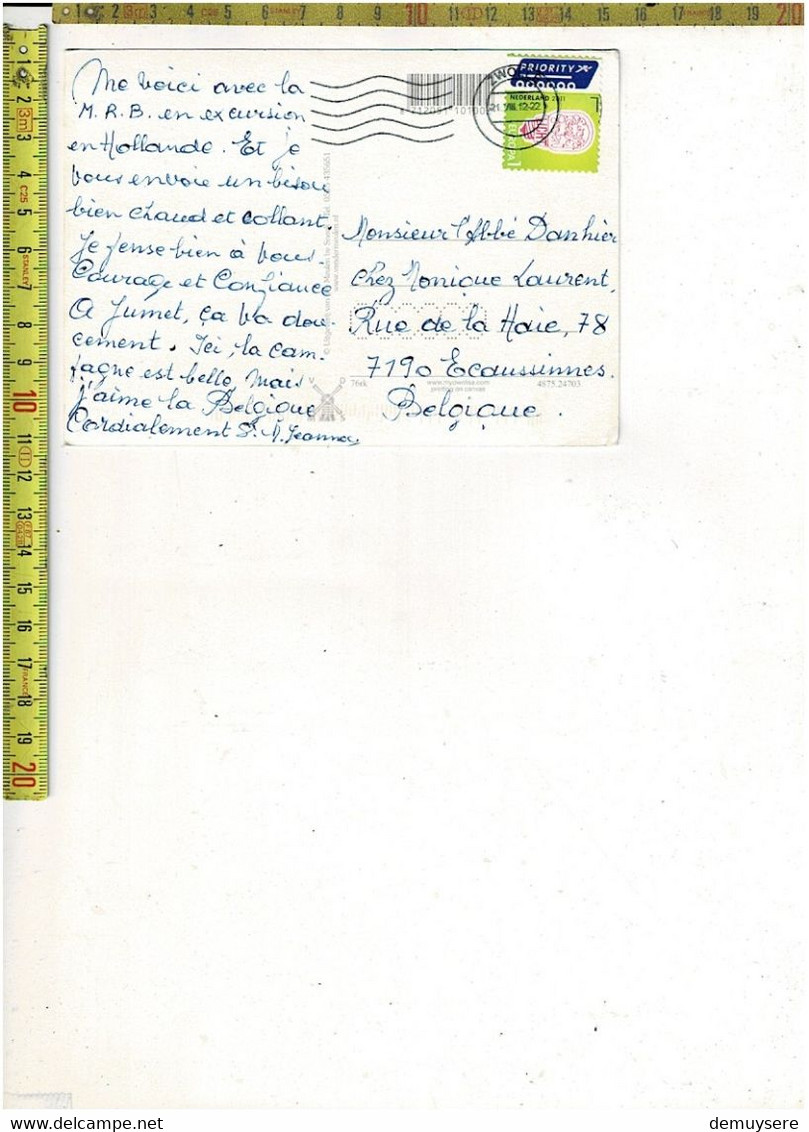 PRIORITY
NEDERLAND 2011
1
EUROPA 1
ZWOLLE
Me voici avec la
M.R.B. en excursion
en Hollande. Et je
vous envoie un bisou
bien chaud et collant.
Je pense bien à vous
Courage et Confiance
A Jumet, ça va dou-
cement. Ici, la cam-
pagne est belle, mais
j'aime la Belgique
Cordialement Sr. M. Jeanne
Monsieur l'Abbé Danhier
chez Monique Laurent,
Rue de la Haie, 78
7190 Ecaussinnes.
Belgique.
76ek
printing on canvas
4875.24703
demuysere